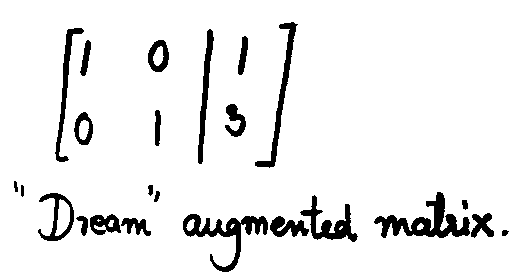 1 0 | 1
0 1 | 3
"Dream" augmented matrix.